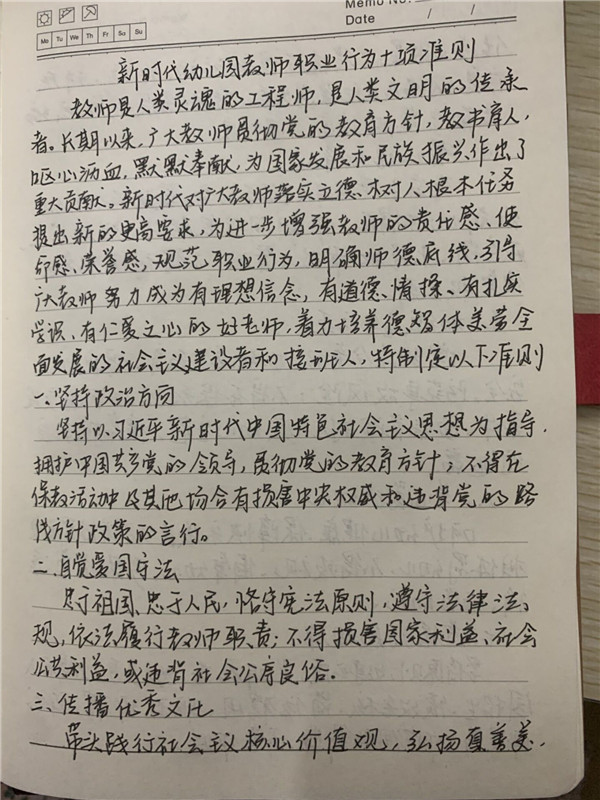 Memo No.
Date / /
Mo Tu We Th Fr Sa Su
新时代幼儿园教师职业行为十项准则
教师是人类灵魂的工程师,是人类文明的传承
者。长期以来,广大教师贯彻党的教育方针,教书育人,
呕心沥血,默默奉献,为国家发展和民族振兴作出了
重大贡献。新时代对广大教师落实立德树人根本任务
提出新的更高要求,为进一步增强教师的责任感、使
命感、荣誉感,规范职业行为,明确师德底线,引导
广大教师努力成为有理想信念,有道德情操、有扎实
学识、有仁爱之心的好老师,着力培养德智体美劳全
面发展的社会主义建设者和接班人,特制定以下准则
一、坚持政治方向
坚持以习近平新时代中国特色社会主义思想为指导,
拥护中国共产党的领导,贯彻党的教育方针;不得在
保教活动中及其他场合有损害中央权威和违背党的路
线方针政策的言行。
二、自觉爱国守法
忠于祖国、忠于人民,恪守宪法原则,遵守法律法
规,依法履行教师职责;不得损害国家利益、社会
公共利益,或违背社会公序良俗.
三、传播优秀文化
带头践行社会主义核心价值观,弘扬真善美,